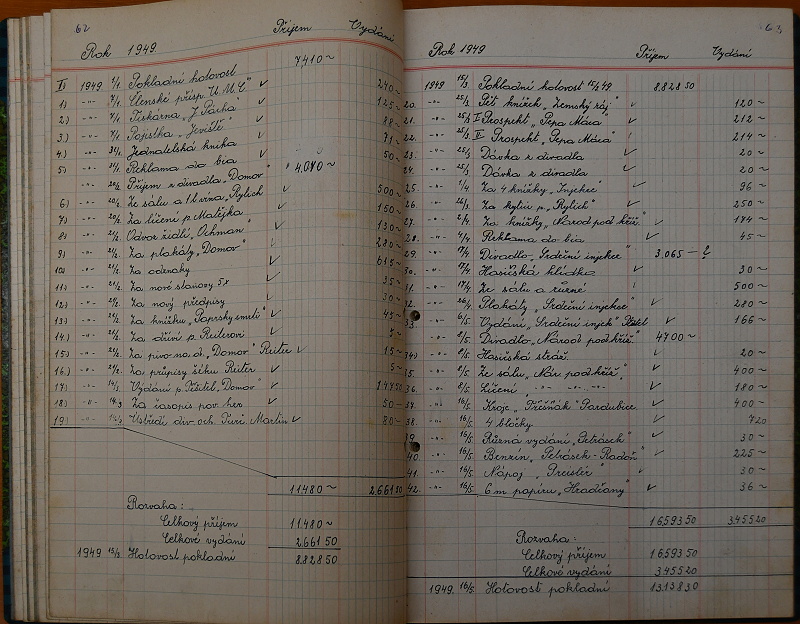 62
Rok 1949 Příjem Vydání
I) 1949 Pokladní hotovost 7,410~
1) Členské přísp. U.M.C. 240~
2) Tiskárna "J. Pácha" 125~
3) Popstka "Jeviště"
4) Jednatelská kniha 71~
5) Reklama do bia 50~
Příjem z divadla "Domov" 4.070~
6) Ze sálu a 1 l vína "Rylich 500~
7) Za líčení p. Matějka 150~
8) Odvoz židlí, Ochman" 130~
9) Za plakáty "Domov" 280~
10) Za odznaky 615~
11) Za nové stanovy 5x 35~
12) Za nový předpisy 30~
13) Za knížku "Paprsky smrti"
14) Za dříví p. Reiterovi
15) Za pivo na d. "Domov" Reiter 15~
16) Za průpisy šéku Reiter 5~
17) Vydání p. Těšitel "Domov"
18) Za časopis pov. her 50~
19) Ústředí div. och. Turč. Martin 80~
11480~ 2.661 50
Rozvaha:
Celkový příjem 11.480~
Celkové vydání 2661 50
1949 15/3 Hotovost pokladní 8.828 50
63
Rok 1949 Příjem Vydání
1949 15/3 Pokladní hotovost 15/3 49. 8.828 50
20. 25/3 Pět knížek "Zemský ráj" 120~
21. 25/3 I Prospekt "Pepa Máca" 212~
22. 25/3 II Prospekt "Pepa Máca" 214~
23. 25/3 Dávka z divadla 20~
24. 25/3 Dávka z divadla 20~
25. 1/4 Za 4 knížky "Injekce" 96~
26. Za kytici p. "Rylich" 250~
27. 2/4 Za knížky "Národ pod kříž." 174~
28. Reklama do bia 45~
29. 17/4 Divadlo "Srdeční injekce" 3.065 —
30. 17/4 Hasičská hlídka 30~
31. 17/4 Ze sálu a různé 500~
32. 26/4 Plakáty "Srdeční injekce" 280~
33. 6/5 Vydání "Srdeční injek" 166~
8/5 Divadlo "Národ pod kříž." 4700~
34. 8/5 Hasičská stráž. 20~
35. 8/5 Ze sálu "Nár. pod kříž" 400~
36. 8/5 Líčení " -"- -"- -"- 180~
37. 16/5 Kroje "Třešňák" Pardubice 400~
38. 16/5 4 bločky 7 20
39. 16/5 Různá vydání "Petrásek" 30~
40. 16/5 Benzin "Petrásek - Radoň" 225~
41. 16/5 Nápoj "Preisler" 30~
42. 16/5 6 m papíru "Hradčany" 36~
16593 50 3455 20
Rozvaha:
Celkový příjem 16593 50
Celkové vydání 3455 20
1949. 16/5 Hotovost pokladní 13138 30